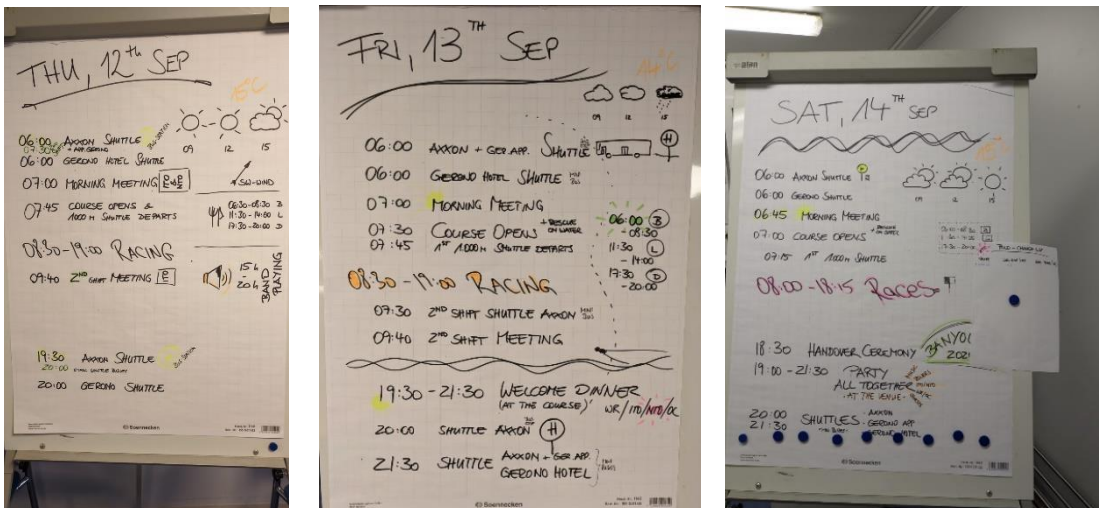 THU, 12th SEP
09 12 15
06:00 AXXON SHUTTLE
06:00 GERONO HOTEL SHUTTLE
SW-WIND
07:00 MORNING MEETING
07:45 COURSE OPENS &
1000m SHUTTLE DEPARTS
06:30-08:30 B
11:30-14:00 L
17:30-20:00 D
08:30-19:00 RACING
09:40 2ND SHIFT MEETING
15h - 20h BAND PLAYING
19:30 AXXON SHUTTLE
20:00
20:00 GERONO SHUTTLE
Soennecken
FRI, 13TH SEP
14°C
09 12 15
06:00 AXXON + GER APP. SHUTTLE H
06:00 GERONO HOTEL SHUTTLE
07:00 MORNING MEETING
07:30 COURSE OPENS + RESCUE ON WATER
07:45 1ST 1000m SHUTTLE DEPARTS
06:00 B
- 08:30
11:30 L
- 14:00
17:30 D
- 20:00
08:30 - 19:00 RACING
07:30 2ND SHIFT SHUTTLE AXXON
09:40 2ND SHIFT MEETING
19:30 - 21:30 WELCOME DINNER
(AT THE COURSE) WR/ITO/NTO/OC
20:00 SHUTTLE AXXON H
21:30 SHUTTLE AXXON + GER APP.
GERONO HOTEL
Soennecken
SAT, 14TH SEP
09 12 15
06:00 AXXON SHUTTLE
06:00 GERONO SHUTTLE
06:45 MORNING MEETING
07:00 COURSE OPENS + RESCUE ON WATER
07:15 1ST 1000m SHUTTLE
08:00 - 18:15 RACES
18:30 HANDOVER CEREMONY
19:00 - 21:30 PARTY
ALL TOGETHER
AT THE VENUE
20:00
21:30 SHUTTLES - AXXON
- GERONO APP
- GERONO HOTEL
Soennecken